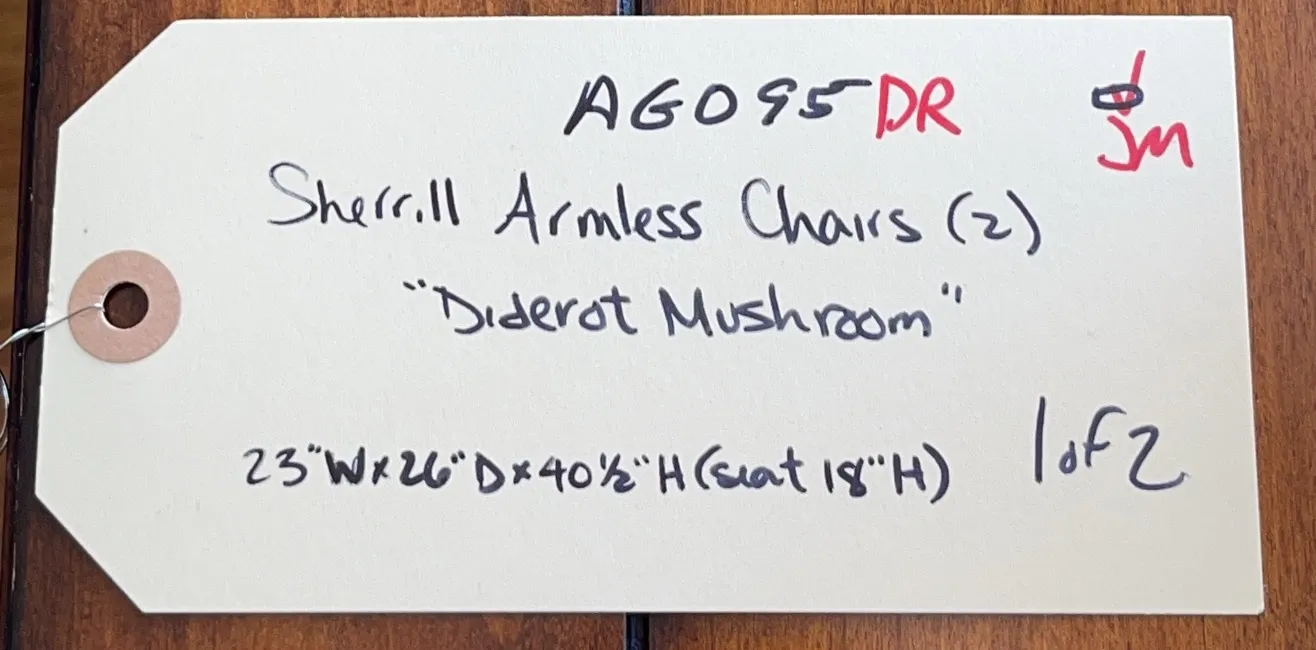 AG095 DR
JM
Sherrill Armless Chairs (2)
"Diderot Mushroom"
23"W x 26"D x 40½"H (seat 18"H)
1 of 2